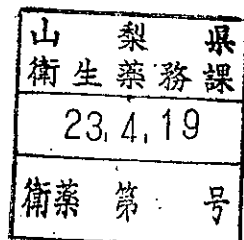 山梨県
衛生薬務課
23.4.19
衛薬 第 号